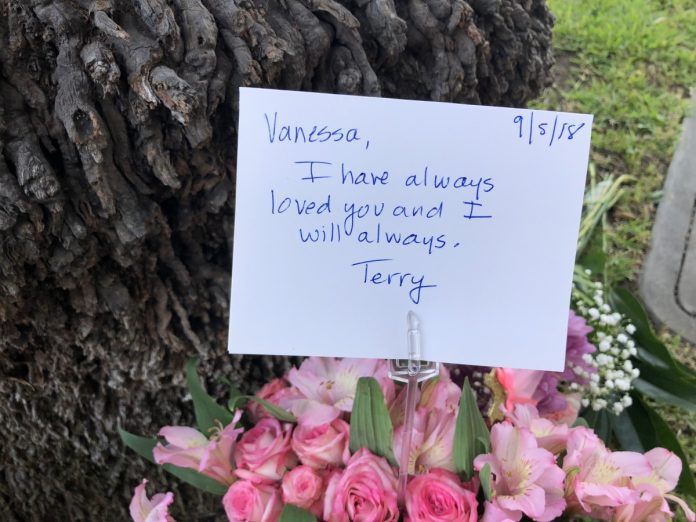 9/5/18
Vanessa,
I have always
loved you and I
will always.
Terry